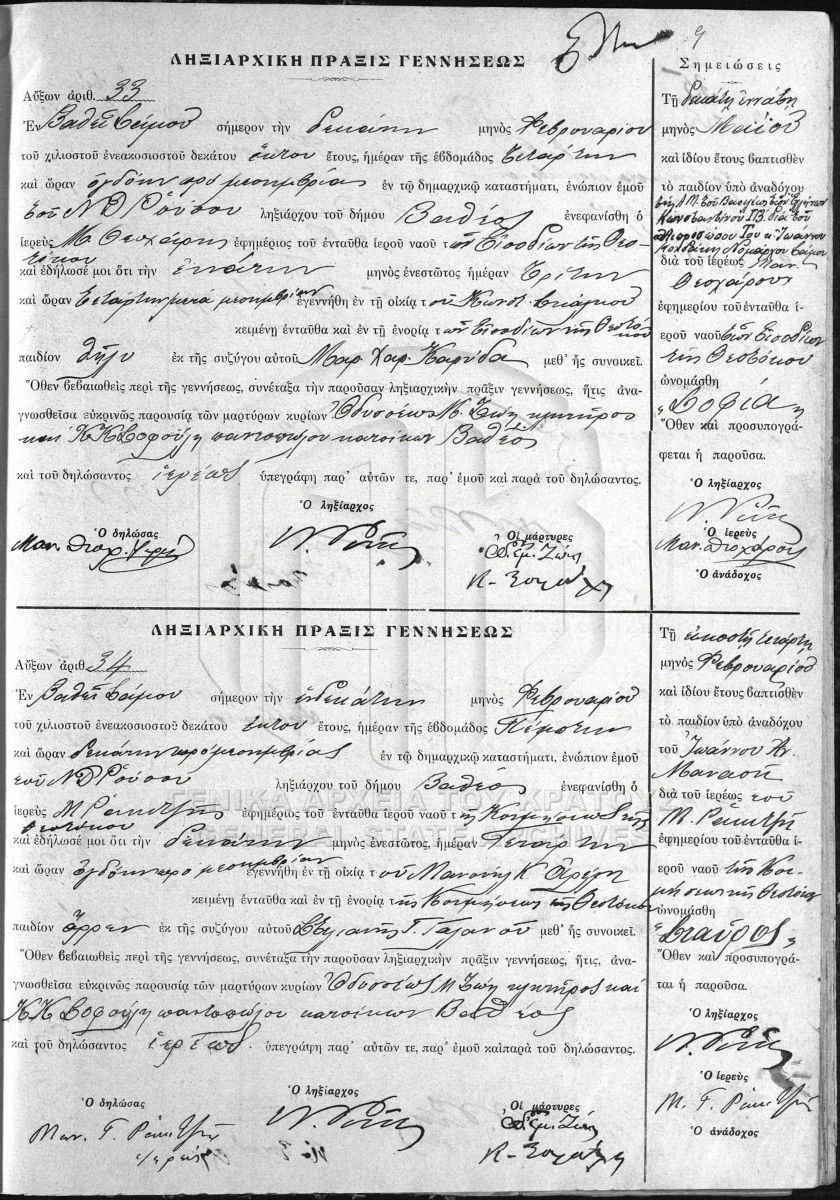 9
ΛΗΞΙΑΡΧΙΚΗ ΠΡΑΞΙΣ ΓΕΝΝΗΣΕΩΣ
Αὔξων ἀριθ. 33
Ἐν Βαθεῖ Σάμου σήμερον τὴν δεκάτην μηνὸς Φεβρουαρίου
τοῦ χιλιοστοῦ ἐνεακοσιοστοῦ δεκάτου ἕκτου ἔτους, ἡμέραν τῆς ἑβδομάδος Τετάρτην
καὶ ὥραν ὀγδόην πρὸ μεσημβρίας ἐν τῷ δημαρχικῷ καταστήματι, ἐνώπιον ἐμοῦ
τοῦ Ν Δ ληξιάρχου τοῦ δήμου Βαθέος ἐνεφανίσθη ὁ
ἱερεὺς Μ. Θεοχάρης ἐφημέριος τοῦ ἐνταῦθα ἱεροῦ ναοῦ τῶν Εἰσοδίων τῆς Θεο-
τόκου
καὶ ἐδήλωσέ μοι ὅτι τὴν ἐνάτην μηνὸς ἐνεστῶτος ἡμέραν Τρίτην
καὶ ὥραν τετάρτην μετὰ μεσημβρίαν ἐγεννήθη ἐν τῇ οἰκίᾳ τοῦ Κωνστ.
κειμένῃ ἐνταῦθα καὶ ἐν τῇ ἐνορίᾳ τῶν Εἰσοδίων τῆς Θεοτόκου
παιδίον θῆλυ ἐκ τῆς συζύγου αὐτοῦ Μαρ. Χαρ. Καρύδα μεθ᾽ ἧς συνοικεῖ.
Ὅθεν βεβαιωθεὶς περὶ τῆς γεννήσεως, συνέταξα τὴν παροῦσαν ληξιαρχικὴν πρᾶξιν γεννήσεως, ἥτις ἀνα-
γνωσθεῖσα εὐκρινῶς παρουσίᾳ τῶν μαρτύρων κυρίων Ὀδυσσέως Μ. Ζώη κλητῆρος
καὶ Κ Κ Σοφούλη παντοπώλου κατοίκων Βαθέος
καὶ τοῦ δηλώσαντος ἱερέως ὑπεγράφη παρ᾽ αὐτῶν τε, παρ᾽ ἐμοῦ καὶ παρὰ τοῦ δηλώσαντος.
Ὁ δηλώσας
Ὁ ληξίαρχος
Οἱ μάρτυρες
Σημειώσεις
Τῇ δεκάτῃ ἐννάτῃ
μηνὸς Μαΐου
καὶ ἰδίου ἔτους βαπτισθὲν
τὸ παιδίον ὑπὸ ἀναδόχου
τῆς Α.Μ. τοῦ Βασιλέως τῶν Ἑλλήνων
Κωνσταντίνου ΙΒ΄ διὰ τοῦ
Του κ. Ἰωάννου
Νομάρχου Σάμου
διὰ τοῦ ἱερέως Μαν.
Θεοχάρους
ἐφημερίου τοῦ ἐνταῦθα ἱ-
εροῦ ναοῦ τῶν Εἰσοδίων
τῆς Θεοτόκου
ὠνομάσθη
„Σοφία„
Ὅθεν καὶ προσυπογρά-
φεται ἡ παροῦσα.
Ὁ ληξίαρχος
Ὁ ἱερεὺς
Μαν. Θεοχάρους
Ὁ ἀνάδοχος
ΛΗΞΙΑΡΧΙΚΗ ΠΡΑΞΙΣ ΓΕΝΝΗΣΕΩΣ
Αὔξων ἀριθ. 34
Ἐν Βαθεῖ Σάμου σήμερον τὴν ἑνδεκάτην μηνὸς Φεβρουαρίου
τοῦ χιλιοστοῦ ἐνεακοσιοστοῦ δεκάτου ἕκτου ἔτους, ἡμέραν τῆς ἑβδομάδος Πέμπτην
καὶ ὥραν δεκάτην πρὸ μεσημβρίας ἐν τῷ δημαρχικῷ καταστήματι, ἐνώπιον ἐμοῦ
τοῦ Ν Δ ληξιάρχου τοῦ δήμου Βαθέος ἐνεφανίσθη ὁ
ἱερεὺς Μ. Ρακιτζῆς ἐφημέριος τοῦ ἐνταῦθα ἱεροῦ ναοῦ τῆς Κοιμήσεως τῆς
Θεοτόκου
καὶ ἐδήλωσέ μοι ὅτι τὴν δεκάτην μηνὸς ἐνεστῶτος, ἡμέραν Τετάρτην
καὶ ὥραν ὀγδόην πρὸ μεσημβρίαν ἐγεννήθη ἐν τῇ οἰκίᾳ τοῦ Μανουὴλ Κ.
κειμένῃ ἐνταῦθα καὶ ἐν τῇ ἐνορίᾳ τῆς Κοιμήσεως τῆς Θεοτόκου
παιδίον ἄρρεν ἐκ τῆς συζύγου αὐτοῦ Στυλιανῆς Γ. Γαλανοῦ μεθ᾽ ἧς συνοικεῖ.
Ὅθεν βεβαιωθεὶς περὶ τῆς γεννήσεως, συνέταξα τὴν παροῦσαν ληξιαρχικὴν πρᾶξιν γεννήσεως, ἥτις, ἀνα-
γνωσθεῖσα εὐκρινῶς παρουσίᾳ τῶν μαρτύρων κυρίων Ὀδυσσέως Μ Ζώη κλητῆρος καὶ
Κ Κ Σοφούλη παντοπώλου κατοίκων Βαθέος
καὶ τοῦ δηλώσαντος ἱερέως ὑπεγράφη παρ᾽ αὐτῶν τε, παρ᾽ ἐμοῦ καὶ παρὰ τοῦ δηλώσαντος.
Ὁ δηλώσας
Μαν. Γ. Ρακιτζῆς
ἱερεύς
Ὁ ληξίαρχος
Οἱ μάρτυρες
Τῇ εἰκοστῇ τετάρτῃ
μηνὸς Φεβρουαρίου
καὶ ἰδίου ἔτους βαπτισθὲν
τὸ παιδίον ὑπὸ ἀναδόχου
τοῦ Ἰωάννου Ἀν.
Μανασῆ
διὰ τοῦ ἱερέως τοῦ
Μ. Ρακιτζῆ
ἐφημερίου τοῦ ἐνταῦθα ἱ-
εροῦ ναοῦ τῆς Κοι-
μήσεως τῆς Θεοτόκου
ὠνομάσθη
„Σταῦρος„
Ὅθεν καὶ προσυπογρά-
ται ἡ παροῦσα.
Ὁ ληξίαρχος
Ὁ ἱερεὺς
Μ. Γ. Ρακιτζῆς
Ὁ ἀνάδοχος
ΓΕΝΙΚΑ ΑΡΧΕΙΑ ΤΟΥ ΚΡΑΤΟΥΣ
GENERAL STATE ARCHIVES